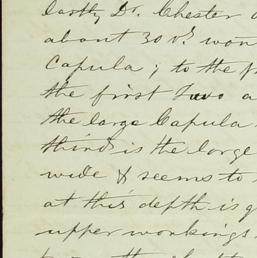 lastly, Dr. Chester
about 30 v.s won
Capula; to the
the first Two a
the large Capula
third is the large
wide & seems to
at this depth is g
upper workings